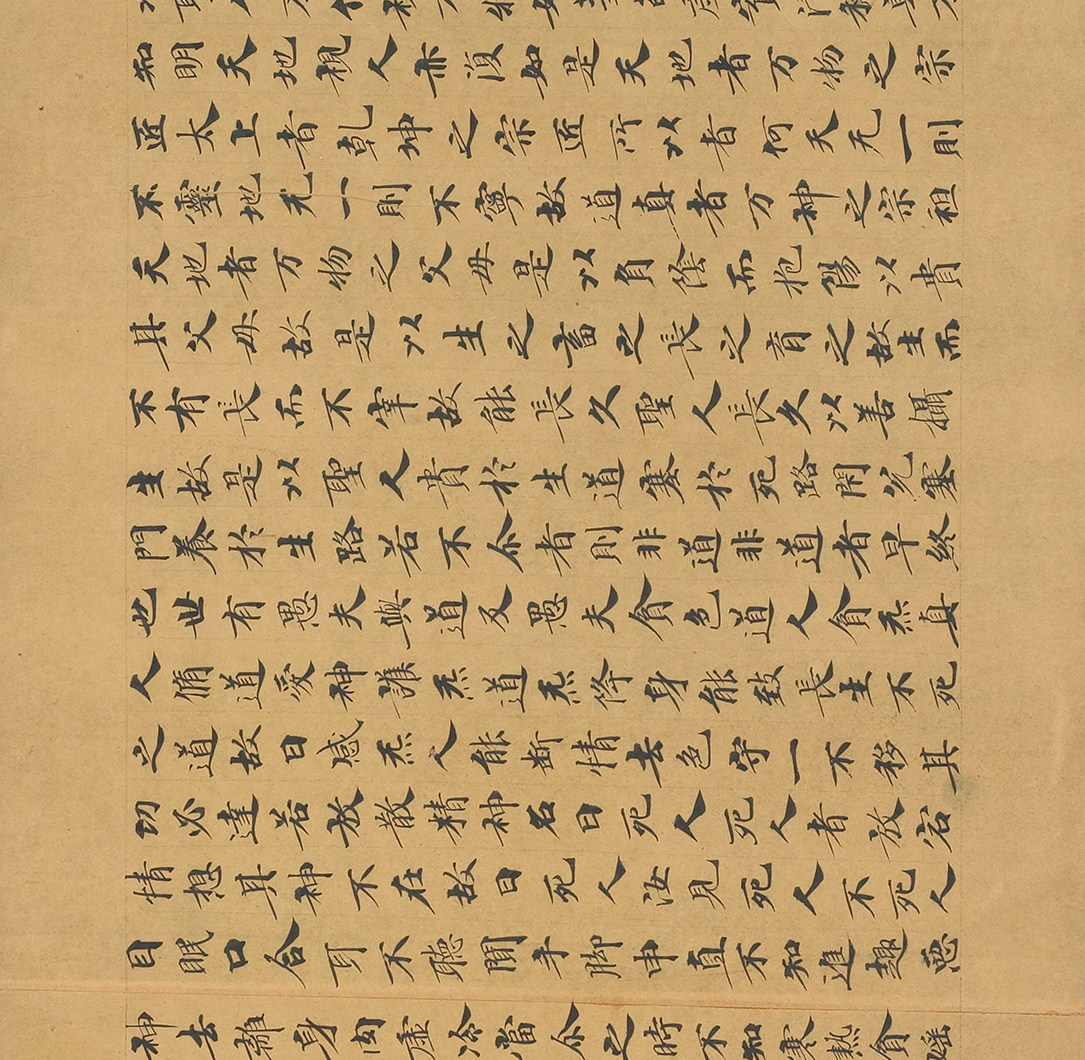 知明天地視人亦復如是天地者万物之宗
匠太上者乾坤之宗匠所以者何天无一則
不靈地无一則不寧故道真者万神之宗祖
天地者万物之父母是以負陰而抱陽以貴
其父母故是以生之畜之長之育之故生而
不有長而不宰故能長久聖人長久以善攝
生故是以聖人貴於生道塞於死路閇塞
門養於生路若不尒者則非道非道者早終
也世有愚夫與道反愚夫貪色道人貪炁真
人脩道愛神炁道炁降身能致長生不死
之道故曰感炁人能断情去色守一不移其
功必達若放散精神名曰死人死人者放宕
情想其神不在故曰死人汝見死人不死人
目眠口合耳不聽聞手脚申直不知進趣惡
神去離身肉虛冷當尒之時不知寒熱貪婬